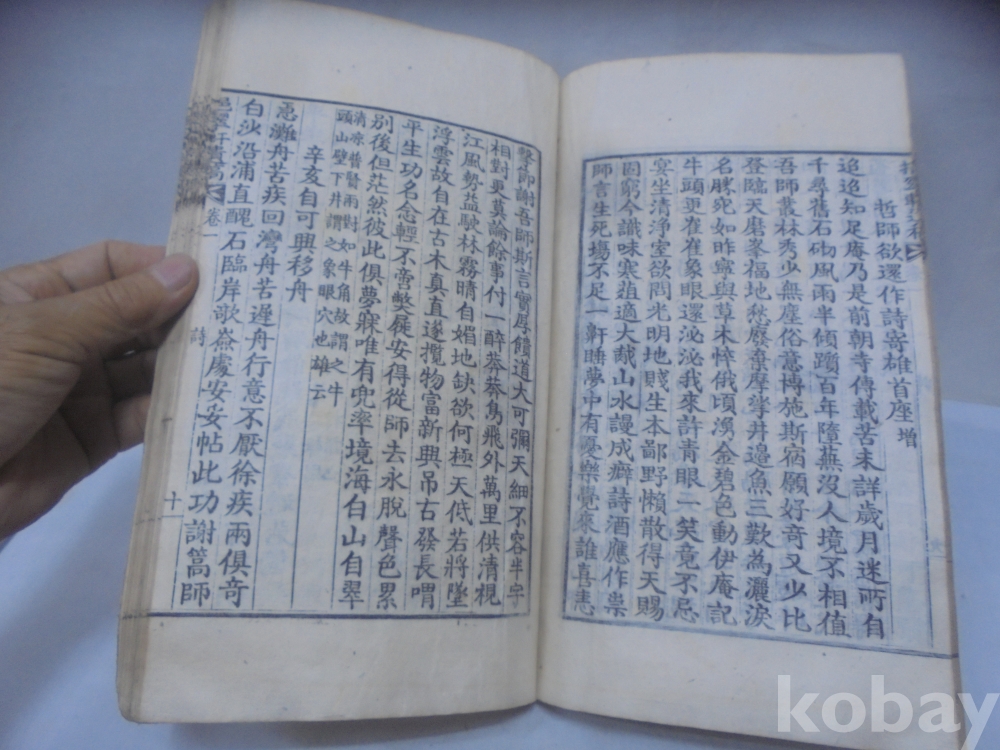 哲師欲還作詩寄雄首座增
追追知足庵乃是前朝寺傳載苦未詳歲月迷所自
千尋舊石砌風雨半傾躓百年隨蕪沒人境不相值
吾師叢林秀少無塵俗意博施斯宿願好奇又少比
登臨天磨峯福地愁廢棄摩挲井邊魚三歎為灑淚
名勝宛如昨寧與草木悴俄頃湧金碧色動伊庵記
牛頭更崔崔象眼還泌泌我來許青眼一笑竟不忌
宴坐清淨室欲問光明地賤生本鄙野懶散得天賜
固窮今識味寒葅適大胾山水謾成癖詩酒應作祟
師言生死場不足一鼾睡夢中有憂樂覺來誰喜恚
擊節謝吾師斯言實厚饋道大可彌天細不容半字
相對更莫論餘事付一醉莽莽鳥飛外萬里供清視
江風勢益駛林霧晴自媚地缺欲何極天低若將墜
浮雲故自在古木真直遂攬物富新興吊古發長喟
平生功名念輕不啻弊屣安得從師去永脫聲色累
別後但茫然彼此俱夢寐唯有兜率境海白山自翠
兩對如牛角故謂之牛
頭山壁下井謂之象眼穴也雄云
辛亥自可興移舟
惡灘舟苦疾回灣舟苦遲舟行意不厭徐疾兩俱奇
白沙沿浦直醜石臨岸欹處安妥帖此功謝篙師
卷一
詩
十
kobay